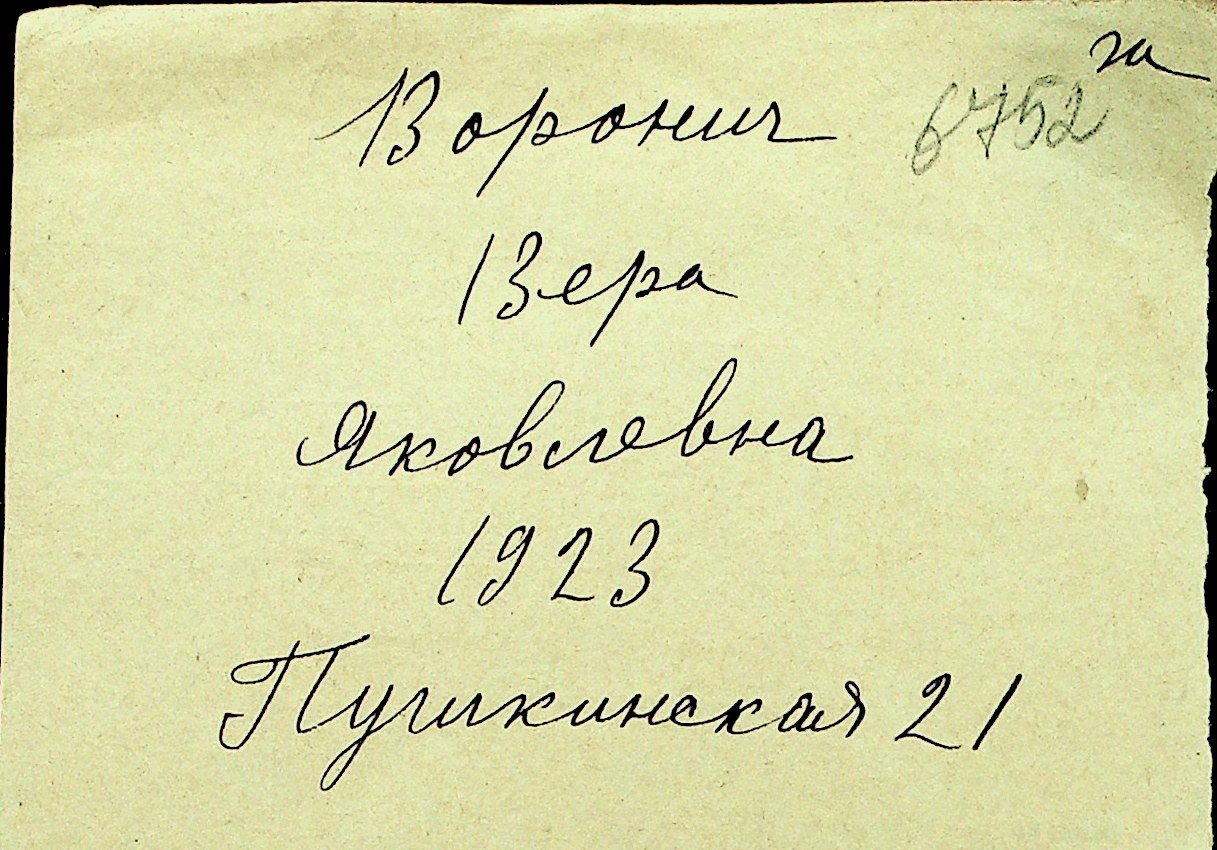 га
Воронич 6752
Вера
Яковлевна
1923
Пушкинская 21